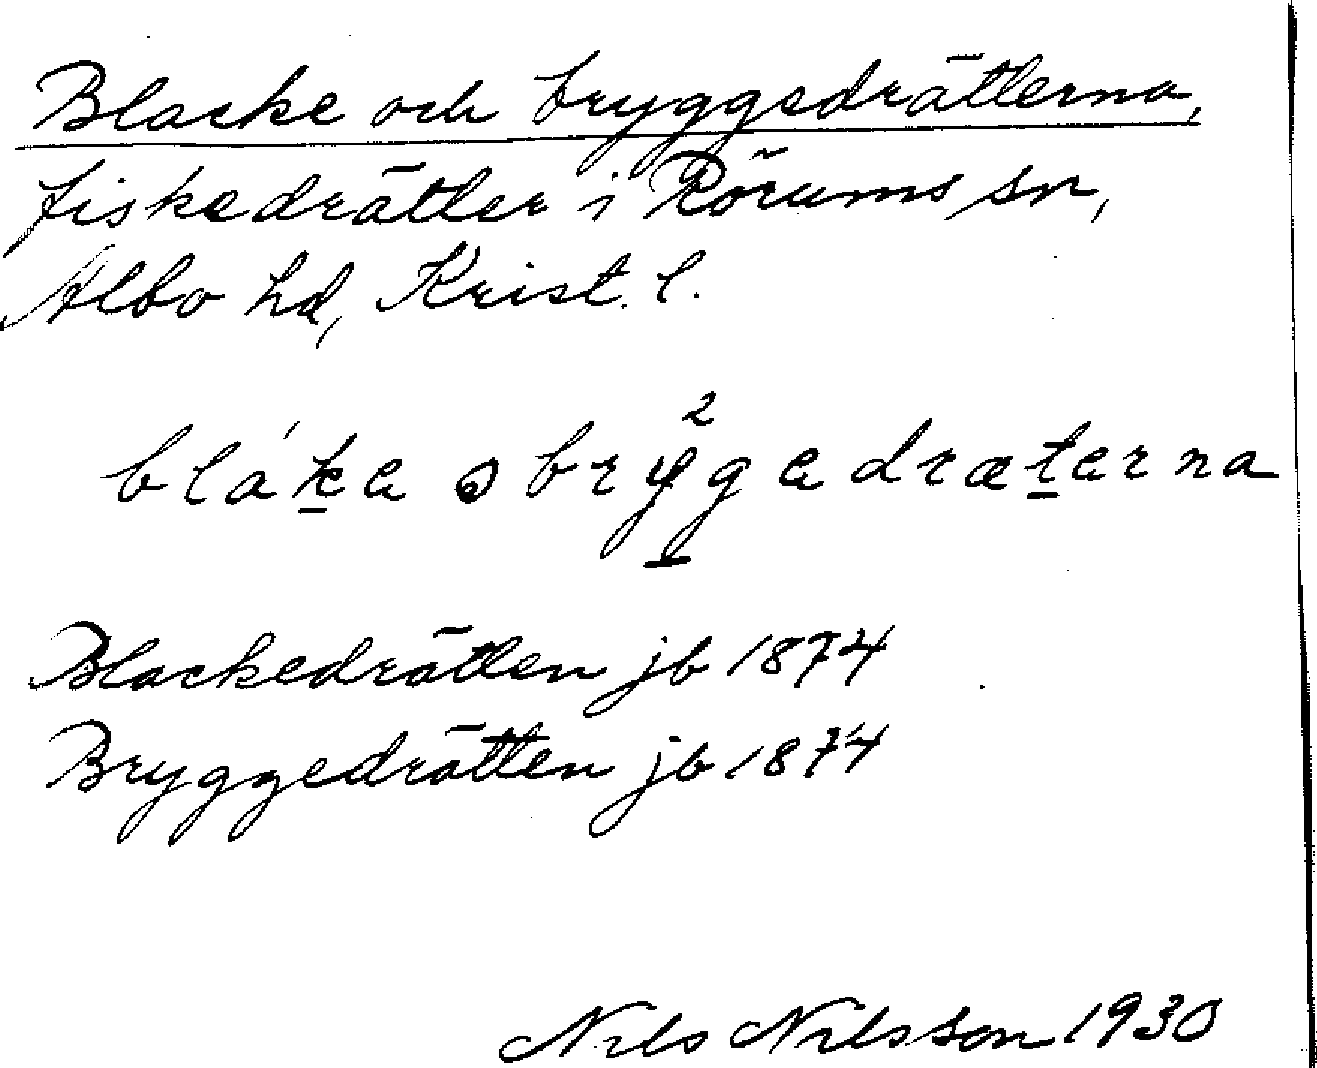 Blacke och bryggedrätterna,
fiskedrätter i Rörums sn,
Albo hd, Krist. l.
bláka ɔ brýgadræterna
2
Blackedrätten jb 1874
Bryggedrätten jb 1874
Nils Nilsson 1930